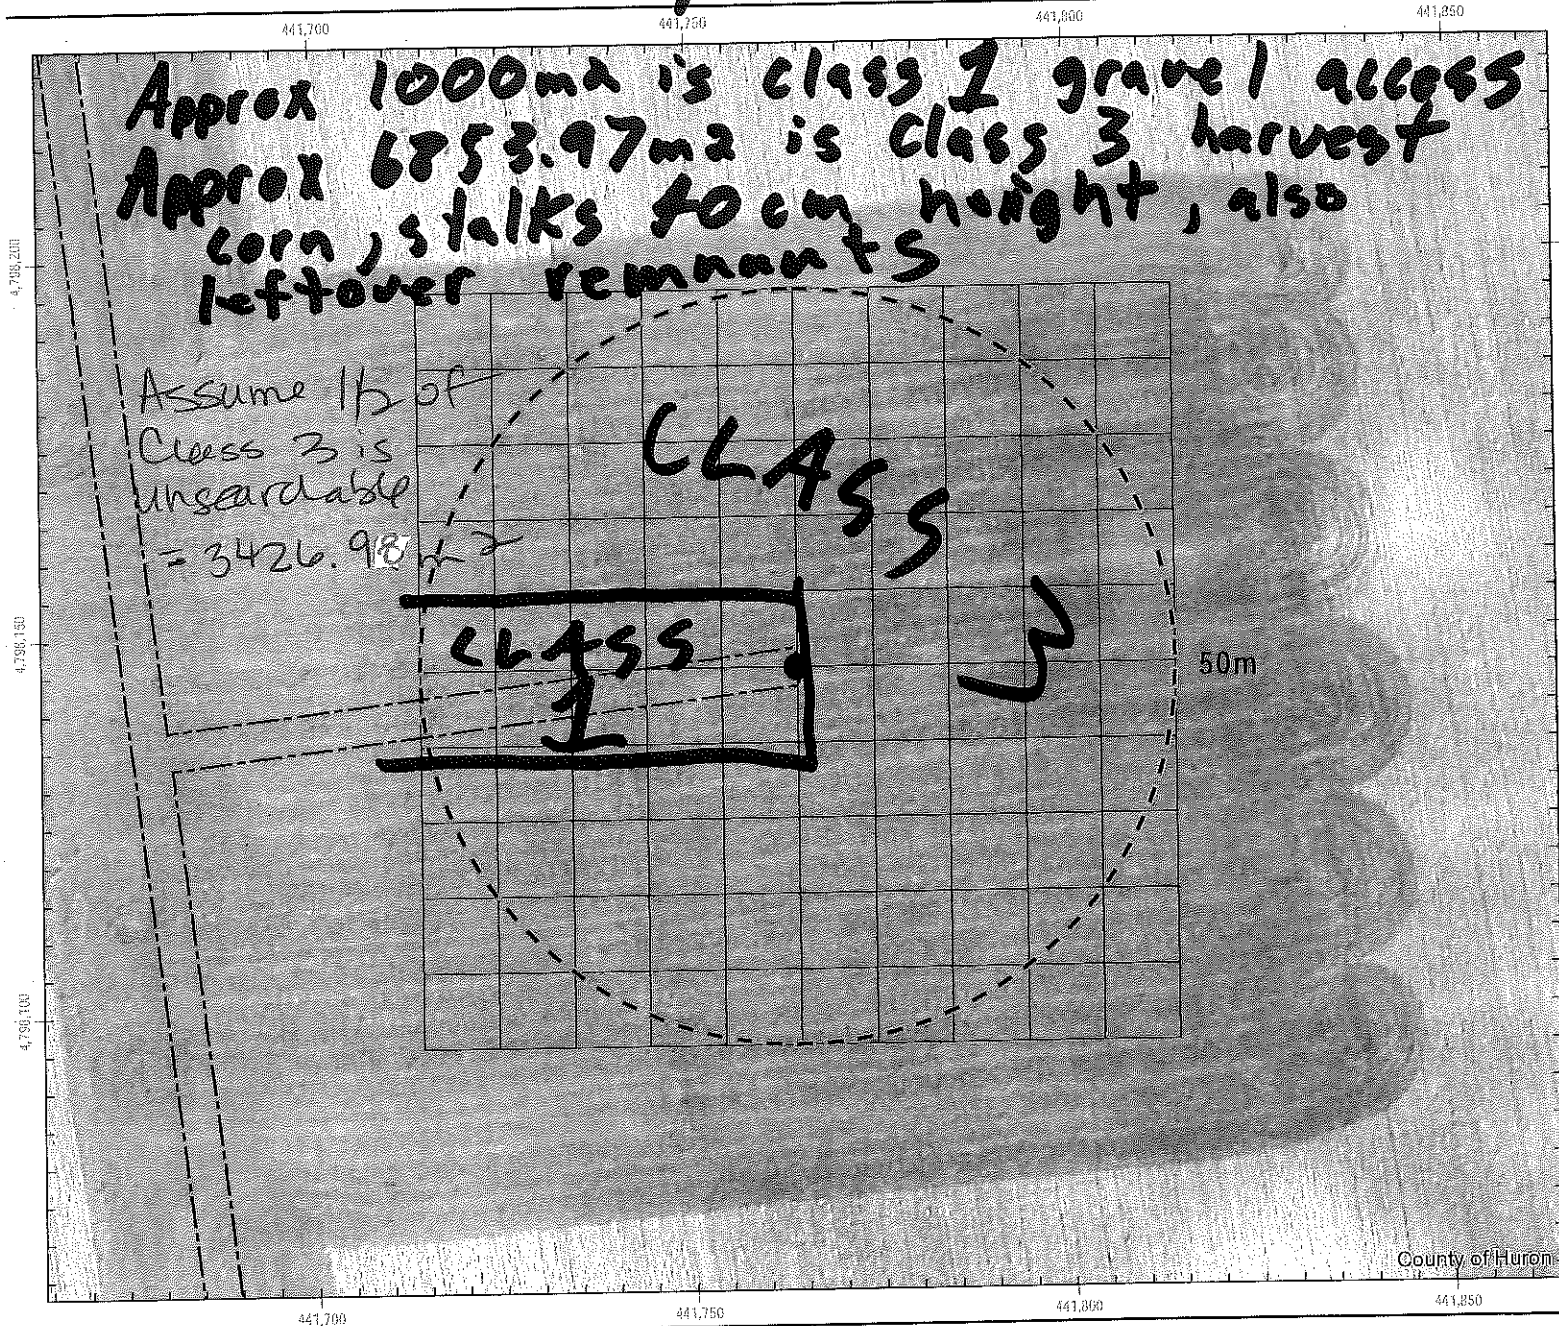 441,700 441,750 441,800 441,850
Approx 1000m2 is class 1 gravel access
Approx 6853.97m2 is class 3 harvest
corn, stalks 40cm height, also
leftover remnants
4,798,200
Assume 1/2 of
Class 3 is
unseardable
= 3426.98 m2
CLASS
3
CLASS
1
4,798,150
50m
4,798,100
County of Huron
441,700 441,750 441,800 441,850